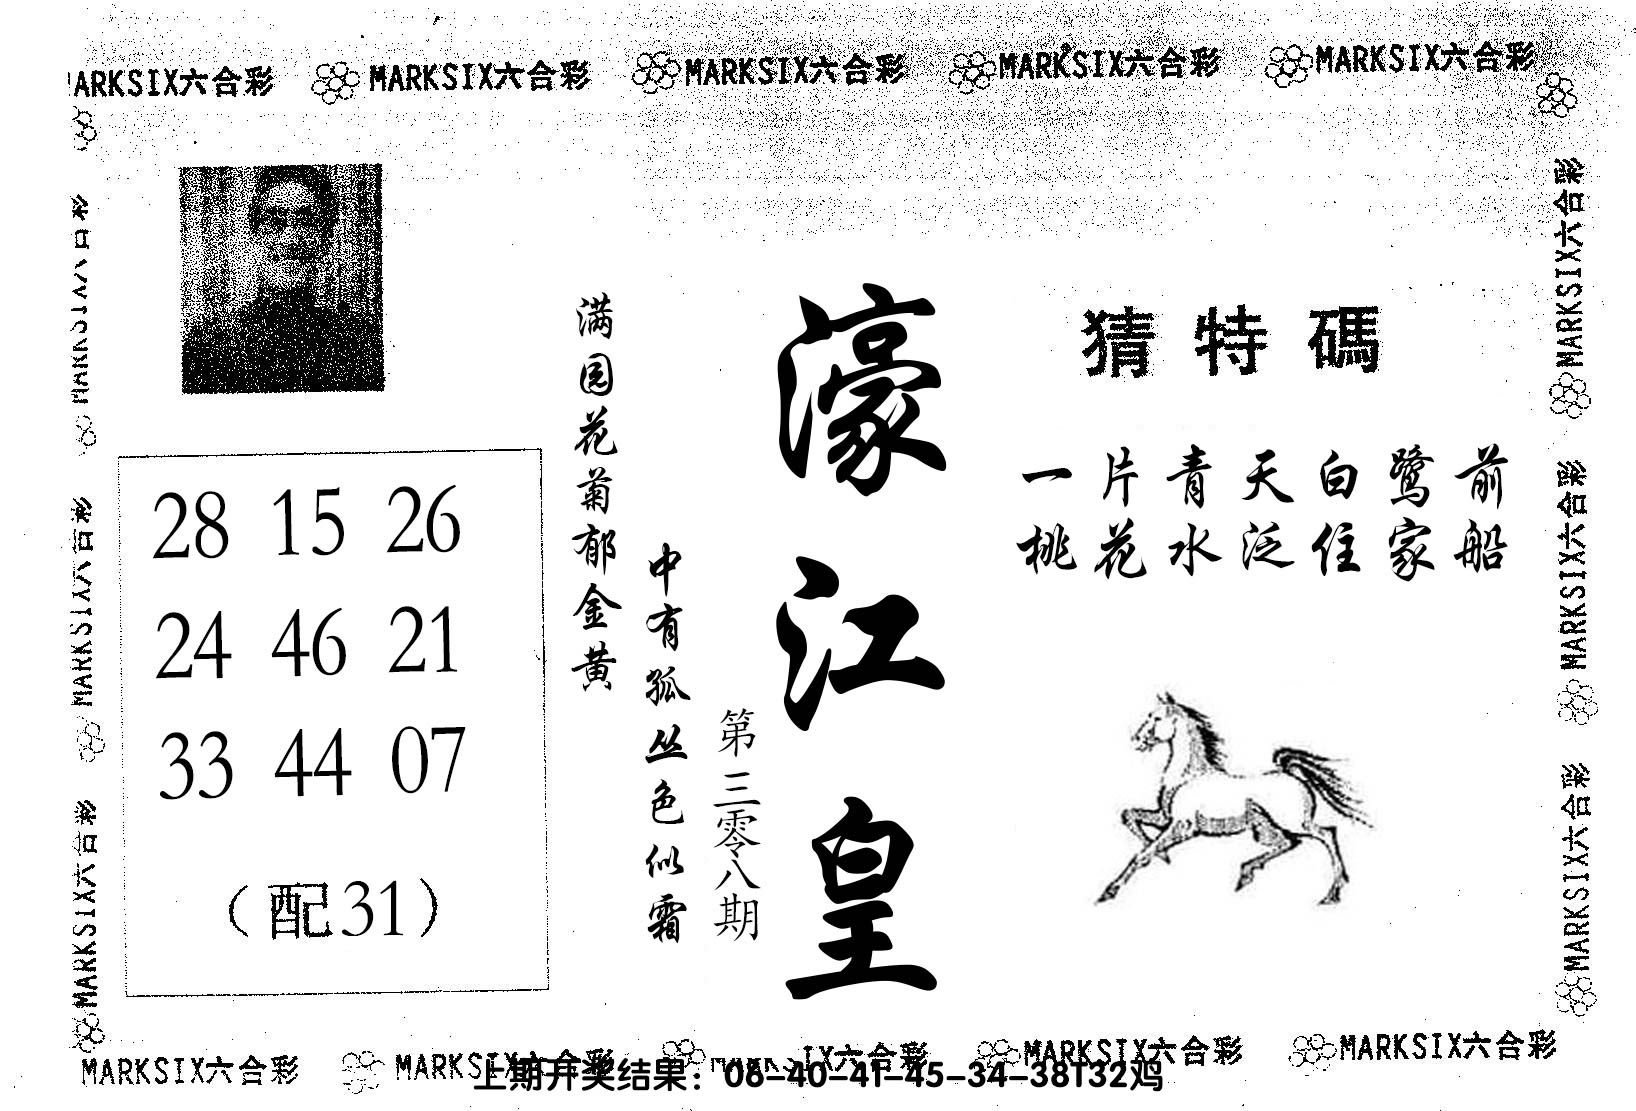 MARKSIX六合彩 MARKSIX六合彩 MARKSIX六合彩 MARKSIX六合彩
ARKSIX六合彩
猜特碼
一片青天白鹭前
桃花水泛住家船
濠江皇
第三零八期
满园花菊郁金黄
中有孤丛色似霜
28 15 26
24 46 21
33 44 07
（配31）
MARKSIX六合彩
MARKSIX六合彩
MARKSIX六合彩
MARKSIX六合彩
MARKSIX六合彩
MARKSIX六合彩
MARKSIX六合彩 MARKSIX六合彩 MARKSIX六合彩 MARKSIX六合彩
上期开奖结果：06-40-41-45-34-38T32鸡